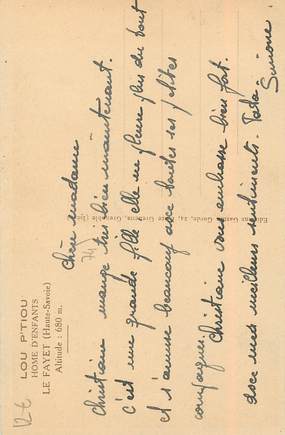 LOU P'TIOU
HOME D'ENFANTS
LE FAYET (Haute-Savoie)
Altitude : 680 m.
12-6
74
Chère madame
Christiane mange très bien maintenant.
c'est une grande fille elle ne pleure plus du tout
et s'amuse beaucoup avec toutes ses petites
compagnes.
Christiane vous embrasse bien fort.
avec mes meilleurs sentiments. Tata
Simone
Editions Gaston Gorde, 24, Grenoble